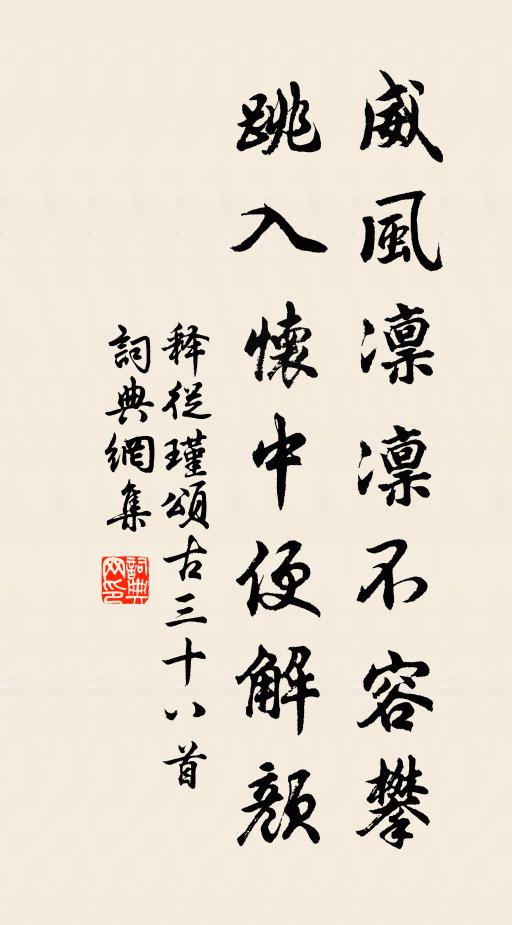 威風凛凛不容攀
跳入懷中便解顏
释從瑾頌古三十八首
詞典網集
詞典網印